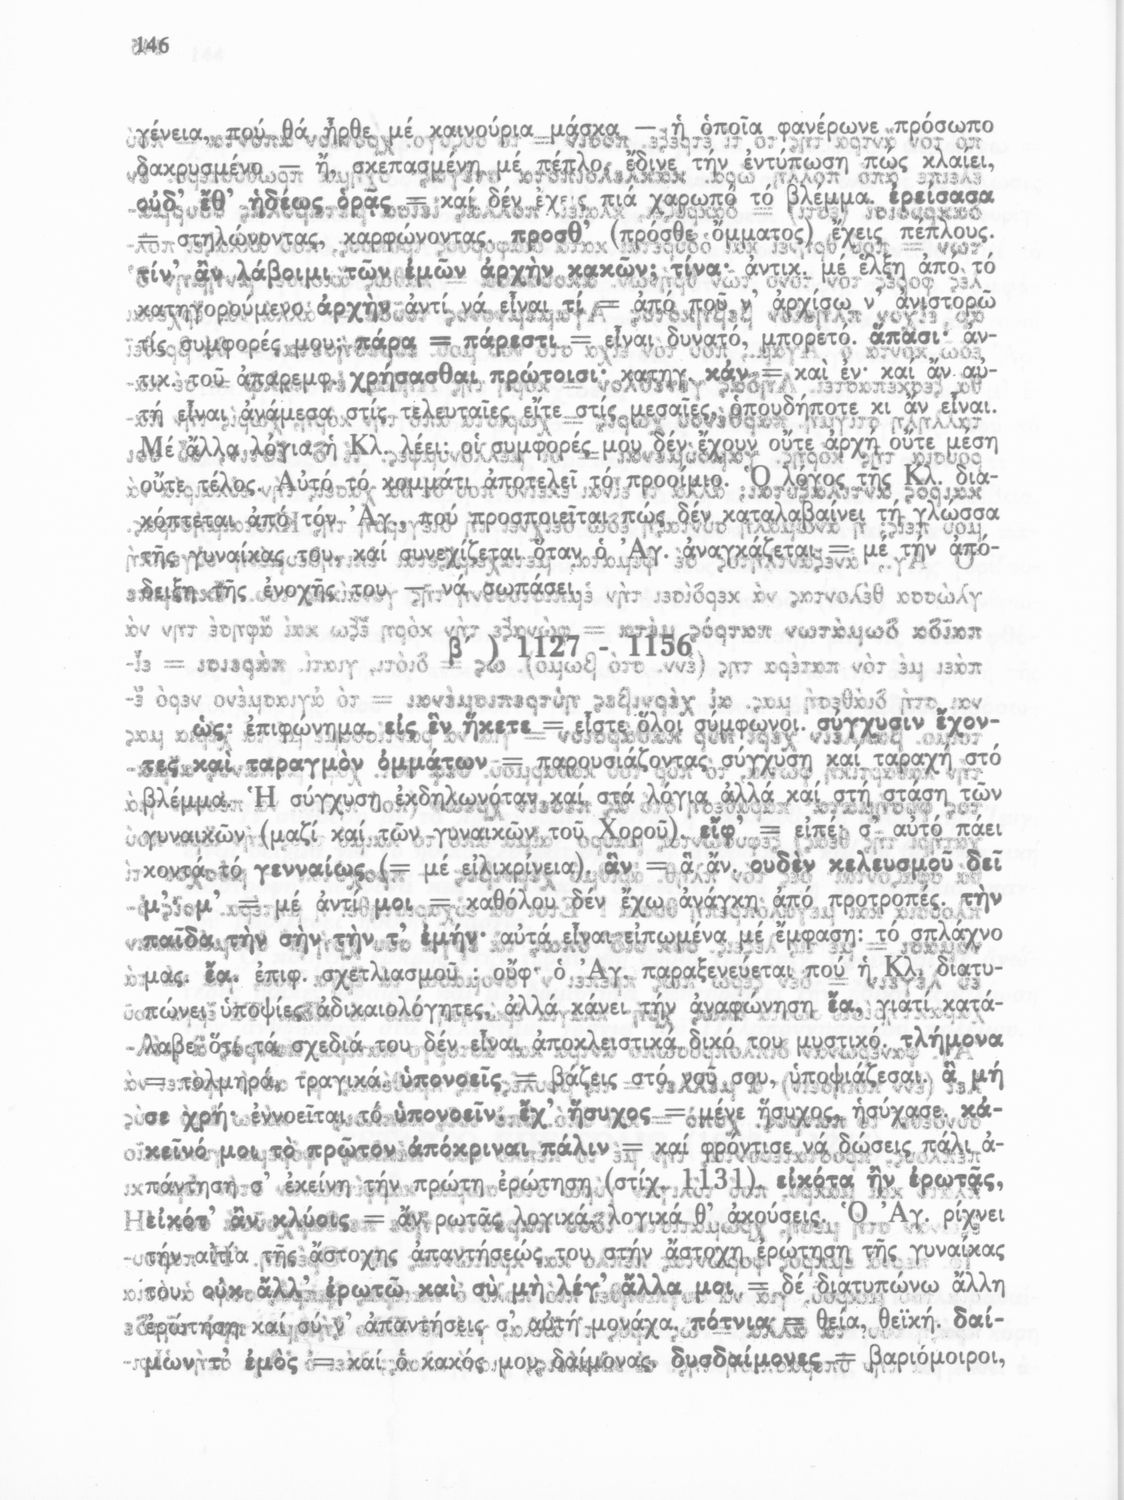 146
γένεια, πού θά ἦρθε μέ καινούρια μάσκα — ἡ ὁποῖα φανέρωνε πρόσωπο
δακρυσμένο — ἤ, σκεπασμένη μέ πέπλο, ἔδινε τήν ἐντύπωση πώς κλαίει,
οὐδ’ ἔθ’ ἡδέως ὁρᾷς = καί δέν ἔχεις πιά χαρωπό τό βλέμμα. ἐρείσασα
= στηλώνοντας, καρφώνοντας, προσθ’ (πρόσθε ὄμματος) ἔχεις πέπλους.
τίν’ ἂν λάβοιμι τῶν ἐμῶν ἀρχὴν κακῶν; τίνα· ἀντικ. μέ ἕλξη ἀπό τό
κατηγορούμενο ἀρχὴν ἀντί νά εἶναι τί = ἀπό ποῦ ν’ ἀρχίσω ν’ ἀνιστορῶ
τίς συμφορές μου; πάρα = πάρεστι = εἶναι δυνατό, μπορετό. ἅπασι· ἀν-
τικ. τοῦ ἀπαρεμφ. χρήσασθαι πρώτοισι· κατηγ. κἀν = καὶ ἐν· καί ἄν αὐ-
τή εἶναι ἀνάμεσα στίς τελευταῖες εἴτε στίς μεσαῖες, ὁπουδήποτε κι ἄν εἶναι.
Μέ ἄλλα λόγια ἡ Κλ. λέει: οἱ συμφορές μου δέν ἔχουν οὔτε ἀρχή οὔτε μέση
οὔτε τέλος. Αὐτό τό κομμάτι ἀποτελεῖ τό προοίμιο. Ὁ λόγος τῆς Κλ. δια-
κόπτεται ἀπό τόν Ἀγ., πού προσποιεῖται πώς δέν καταλαβαίνει τή γλώσσα
τῆς γυναίκας του, καί συνεχίζεται ὅταν ὁ Ἀγ. ἀναγκάζεται — μέ τήν ἀπό-
δειξη τῆς ἐνοχῆς του — νά σωπάσει.
β΄ ) 1127 - 1156
ὡς· ἐπιφώνημα. εἰς ἓν ἥκετε = εἶστε ὅλοι σύμφωνοι. σύγχυσιν ἔχον-
τες καὶ ταραγμὸν ὀμμάτων = παρουσιάζοντας σύγχυση καί ταραχή στό
βλέμμα. Ἡ σύγχυση ἐκδηλωνόταν καί στά λόγια ἀλλά καί στή στάση τῶν
γυναικῶν (μαζί καί τῶν γυναικῶν τοῦ Χοροῦ). εἴφ’ = εἰπέ· σ’ αὐτό πάει
κοντά τό γενναίως (= μέ εἰλικρίνεια), ἃν = ἃ ἄν. οὐδὲν κελευσμοῦ δεῖ
μ’· μ’ = μέ ἀντί μοι = καθόλου δέν ἔχω ἀνάγκη ἀπό προτροπές. τὴν
παῖδα τὴν σὴν τὴν τ’ ἐμήν· αὐτά εἶναι εἰπωμένα μέ ἔμφαση: τό σπλάχνο
μας. ἔα. ἐπιφ. σχετλιασμοῦ : οὔφ· ὁ Ἀγ. παραξενεύεται πού ἡ Κλ. διατυ-
πώνει ὑποψίες ἀδικαιολόγητες, ἀλλά κάνει τήν ἀναφώνηση ἔα, γιατί κατά-
λαβε ὅτι τά σχεδιά του δέν εἶναι ἀποκλειστικά δικό του μυστικό. τλήμονα
= τολμηρά, τραγικά. ὑπονοεῖς = βάζεις στό νοῦ σου, ὑποψιάζεσαι. ἃ μή
σε χρή· ἐννοεῖται τό ὑπονοεῖν. ἔχ’ ἥσυχος = μένε ἥσυχος, ἡσύχασε. κἀ-
κεῖνό μοι τὸ πρῶτον ἀπόκριναι πάλιν = καί φρόντισε νά δώσεις πάλι ἀ-
πάντηση σ’ ἐκείνη τήν πρώτη ἐρώτηση (στίχ. 1131). εἰκότα ἢν ἐρωτᾷς,
εἰκότ’ ἂν κλύοις = ἄν ρωτᾶς λογικά, λογικά θ’ ἀκούσεις. Ὁ Ἀγ. ρίχνει
τήν αἰτία τῆς ἄστοχης ἀπαντήσεώς του στήν ἄστοχη ἐρώτηση τῆς γυναίκας
του. οὐκ ἄλλ’ ἐρωτῶ καὶ σὺ μὴ λέγ’ ἄλλα μοι, = δέ διατυπώνω ἄλλη
ἐρώτηση καί σύ ν’ ἀπαντήσεις σ’ αὐτή μονάχα. πότνια = θεία, θεϊκή. δαί-
μων τ’ ἐμός = καί ὁ κακός μου δαίμονας. δυσδαίμονες = βαριόμοιροι,